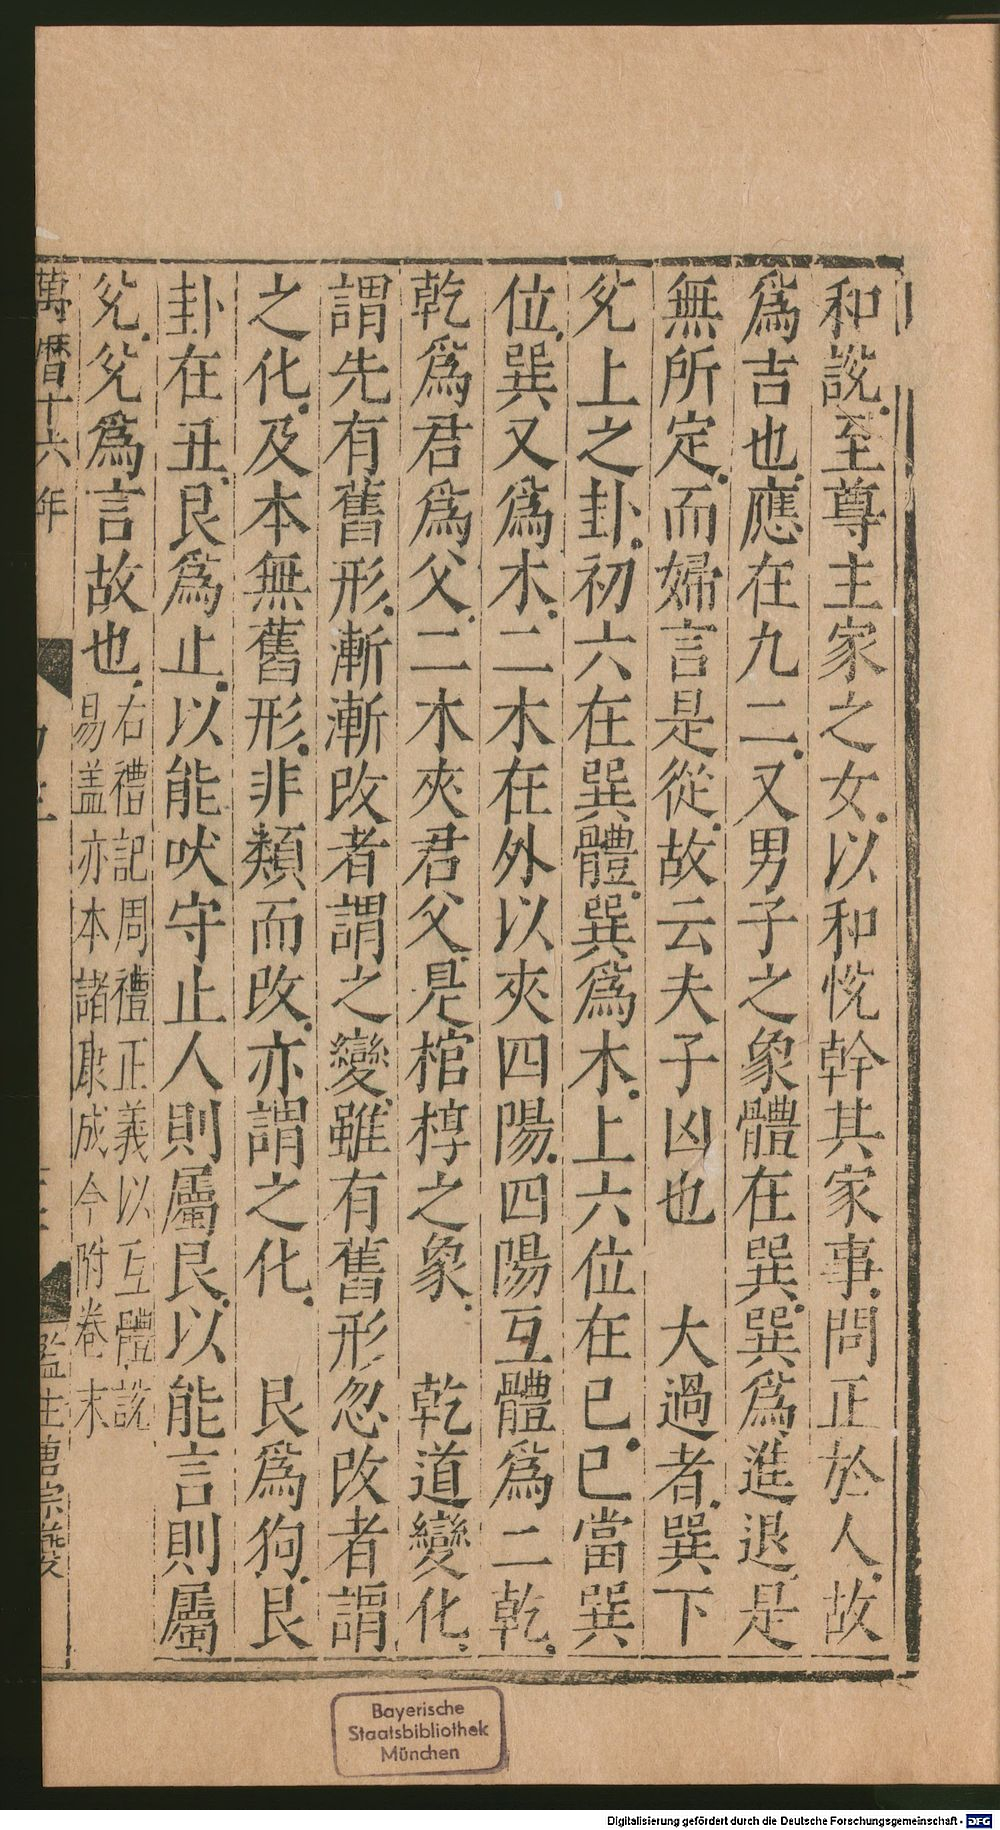 和說至尊主家之女以和悅幹其家事問正於人故
爲吉也應在九二又男子之象體在巽巽爲進退是
無所定而婦言是從故云夫子凶也　大過者巽下
兊上之卦初六在巽體巽爲木上六位在巳巳當巽
位巽又爲木二木在外以夾四陽四陽互體爲二乾
乾爲君爲父二木夾君父是棺椁之象　乾道變化
謂先有舊形漸漸改者謂之變雖有舊形忽改者謂
之化及本無舊形非類而改亦謂之化　艮爲狗艮
卦在丑艮爲止以能吠守止人則屬艮以能言則屬
兊兊爲言故也
右禮記周禮正義以互體說
易盖亦本諸康成今附卷末
萬曆十六年
監生曹
Bayerische
Staatsbibliothek
München
Digitalisierung gefördert durch die Deutsche Forschungsgemeinschaft - DFG